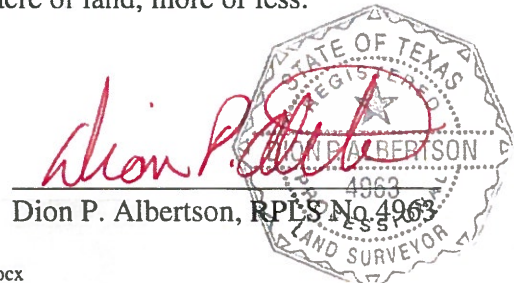 here of land, more or less.
Dion P. Albertson
STATE OF TEXAS
REGISTERED
DION P. ALBERTSON
4963
PROFESSIONAL
LAND SURVEYOR
Dion P. Albertson, RPLS No. 4963
ocx